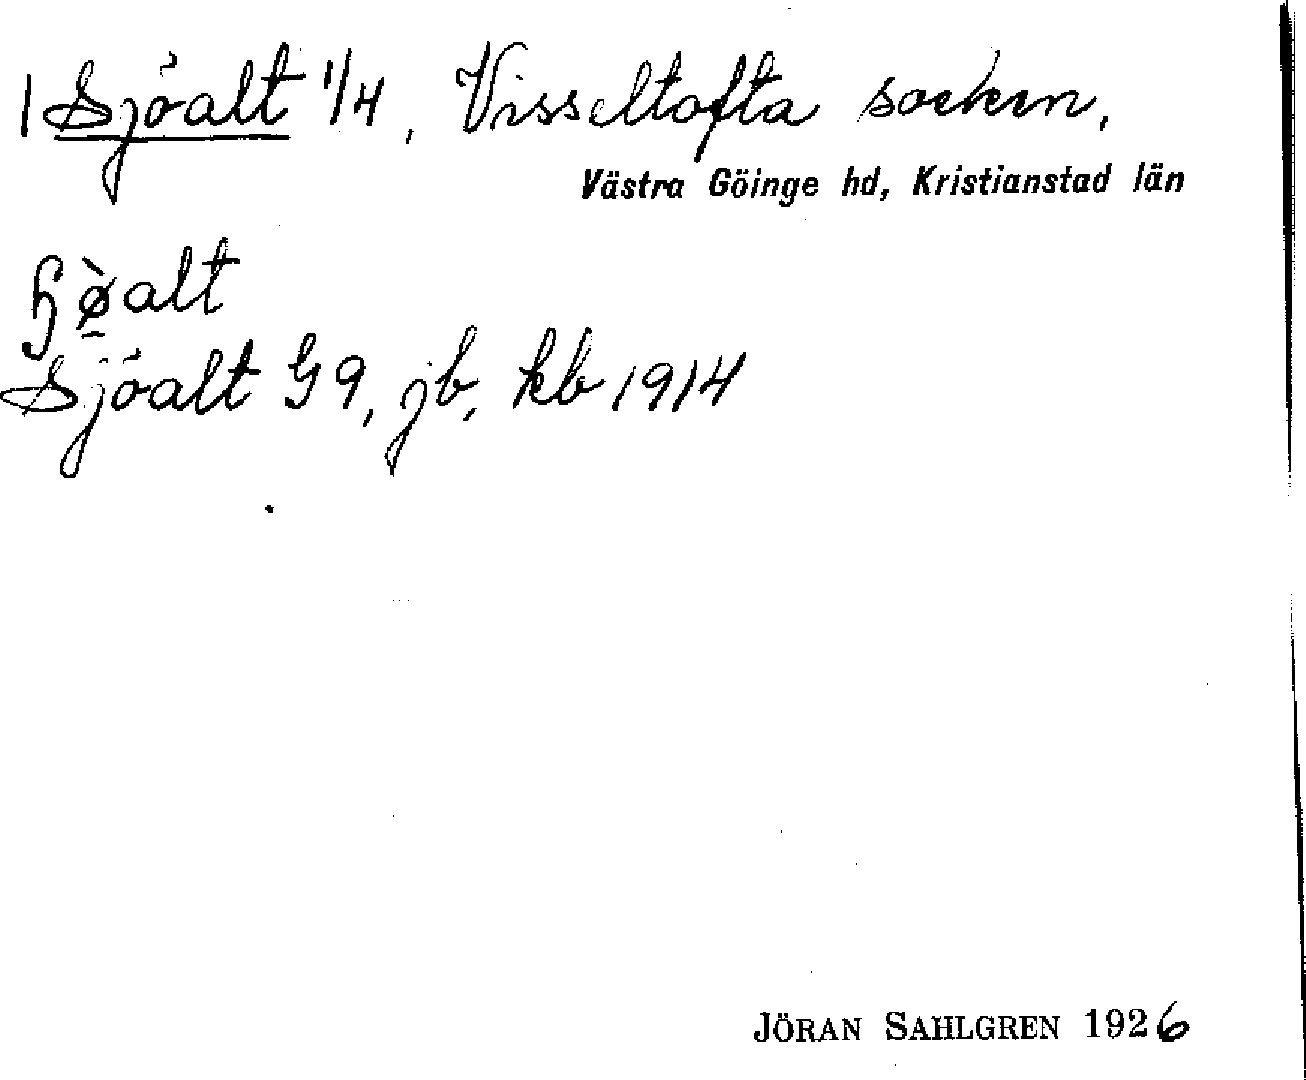 1 Sjöalt 1/4, Visseltofta socken,
Västra Göinge hd, Kristianstad län
ɧø̠̀alt
Sjöalt G 9, jb, kb 1914
JÖRAN SAHLGREN 1926